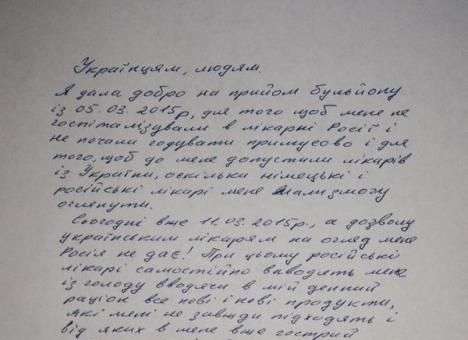 Українцям, людям.
Я дала добро на прийом бульйону
із 05.03.2015р, для того щоб мене не
госпіталізували в лікарні Росії і
не почали годувати примусово і для
того, щоб до мене допустили лікарів
із України, оскільки німецькі і
російські лікарі мене мали змогу
оглянути.
Сьогодні вже 11.03.2015р., а дозволу
українським лікарям на огляд мене
Росія не дає! При цьому російські
лікарі самостійно виводять мене
із голоду вводячи в мій денний
раціон все нові і нові продукти,
які мені не завжди підходять і
від яких в мене вже гострий